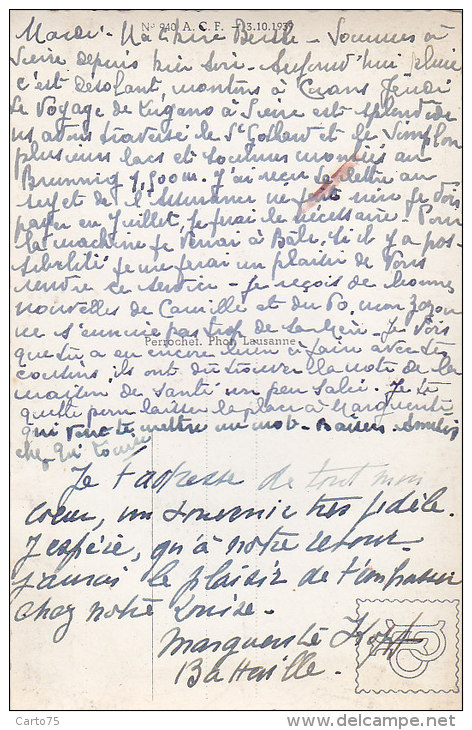 N° 940 A. C. F. - 3.10.1939
Mardi - Ma chère Berthe - Sommes à
Sierre depuis hier soir. Aujourd'hui pluie
c'est désolant, montons à Crans Jeudi
Le voyage de Lugano à Sierre est splendide
ns avons traversé le St Gothard et le Simplon
plusieurs lacs et sommes montés au
Brunnig 1,500m. J'ai reçu la lettre au
sujet de l'assurance ne fait rien je dois
payer en Juillet, je ferai le nécessaire. Pour
la machine je verrai à Bâle, si il y a pos-
sibilité je me ferai un plaisir de vous
rendre ce service - Je reçois de bonnes
nouvelles de Camille et du Po, mon
ne s'ennuie pas trop de sa mère. Je vois
Perrochet. Phot. Lausanne
que tu a eu encore bien à faire avec tes
cousins, ils ont dû trouver la note de la
maison de santé un peu salée. Je te
quitte pour laisser la place à Marguerite
qui veut te mettre un mot - Baisers
chez qui
Je t'adresse de tout mon
cœur, un souvenir très fidèle.
J'espère, qu'à notre retour
j'aurai le plaisir de t'embrasser
chez notre Louise -
Marguerite
Battaille.
Carto75